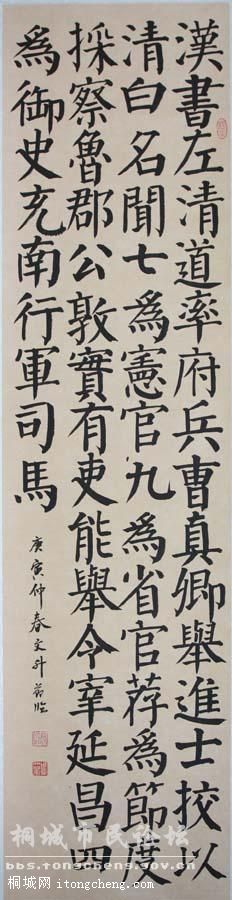 漢書左清道率府兵曹真卿舉進士挍以
清白名聞七爲憲官九爲省官荐爲節度
採察魯郡公敦實有吏能舉令宰延昌四
爲御史充南行軍司馬
庚寅仲春文升临
桐城市民论坛
bbs.tongcheng.gov.cn
桐城网 itongcheng.com